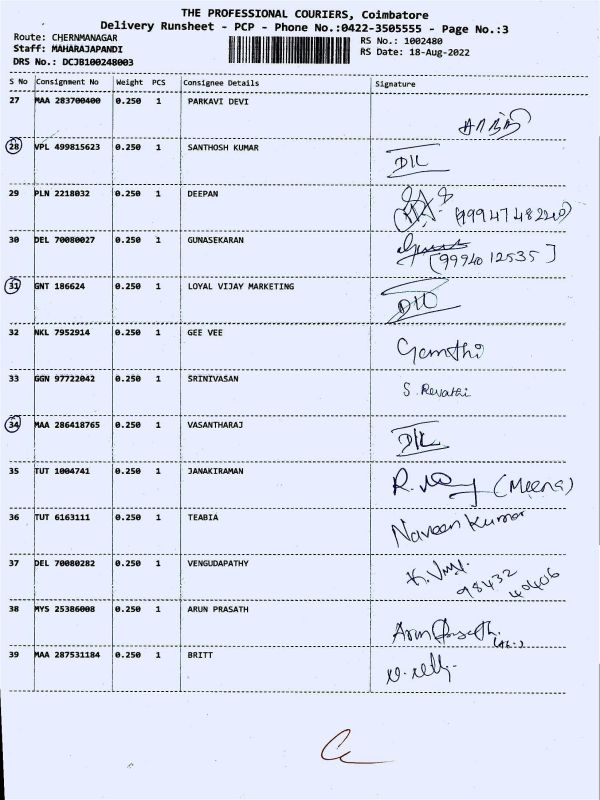 THE PROFESSIONAL COURIERS, Coimbatore
Delivery Runsheet - PCP - Phone No.:0422-3505555 - Page No.:3
Route: CHERNMANAGAR RS No.: 1002480
Staff: MAHARAJAPANDI RS Date: 18-Aug-2022
DRS No.: DCJB100248003
S No Consignment No Weight PCS Consignee Details Signature
27 MAA 283700400 0.250 1 PARKAVI DEVI
28 VPL 499815623 0.250 1 SANTHOSH KUMAR
29 PLN 2218032 0.250 1 DEEPAN
30 DEL 70080027 0.250 1 GUNASEKARAN
[99940 12535]
31 GNT 186624 0.250 1 LOYAL VIJAY MARKETING
32 NKL 7952914 0.250 1 GEE VEE
33 GGN 97722042 0.250 1 SRINIVASAN
S. Revathi
34 MAA 286418765 0.250 1 VASANTHARAJ
35 TUT 1004741 0.250 1 JANAKIRAMAN
(Meena)
36 TUT 6163111 0.250 1 TEABIA
Naveen Kumar
37 DEL 70080282 0.250 1 VENGUDAPATHY
98432
40406
38 MYS 25386008 0.250 1 ARUN PRASATH
Arun Prasath.
39 MAA 287531184 0.250 1 BRITT